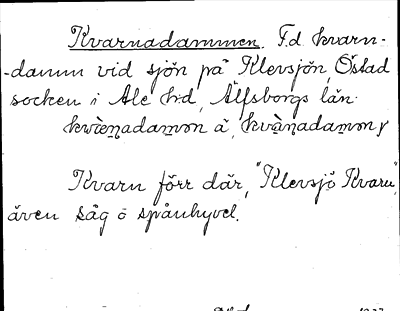 Kvarnadammen. F.d. kvarn-
-damm vid sjön på Klevsjön, Östad
socken i Ale h:d, Älfsborgs län.
Kvarn förr där, "Klevsjö Kvarn",
även såg o spånhyvel.